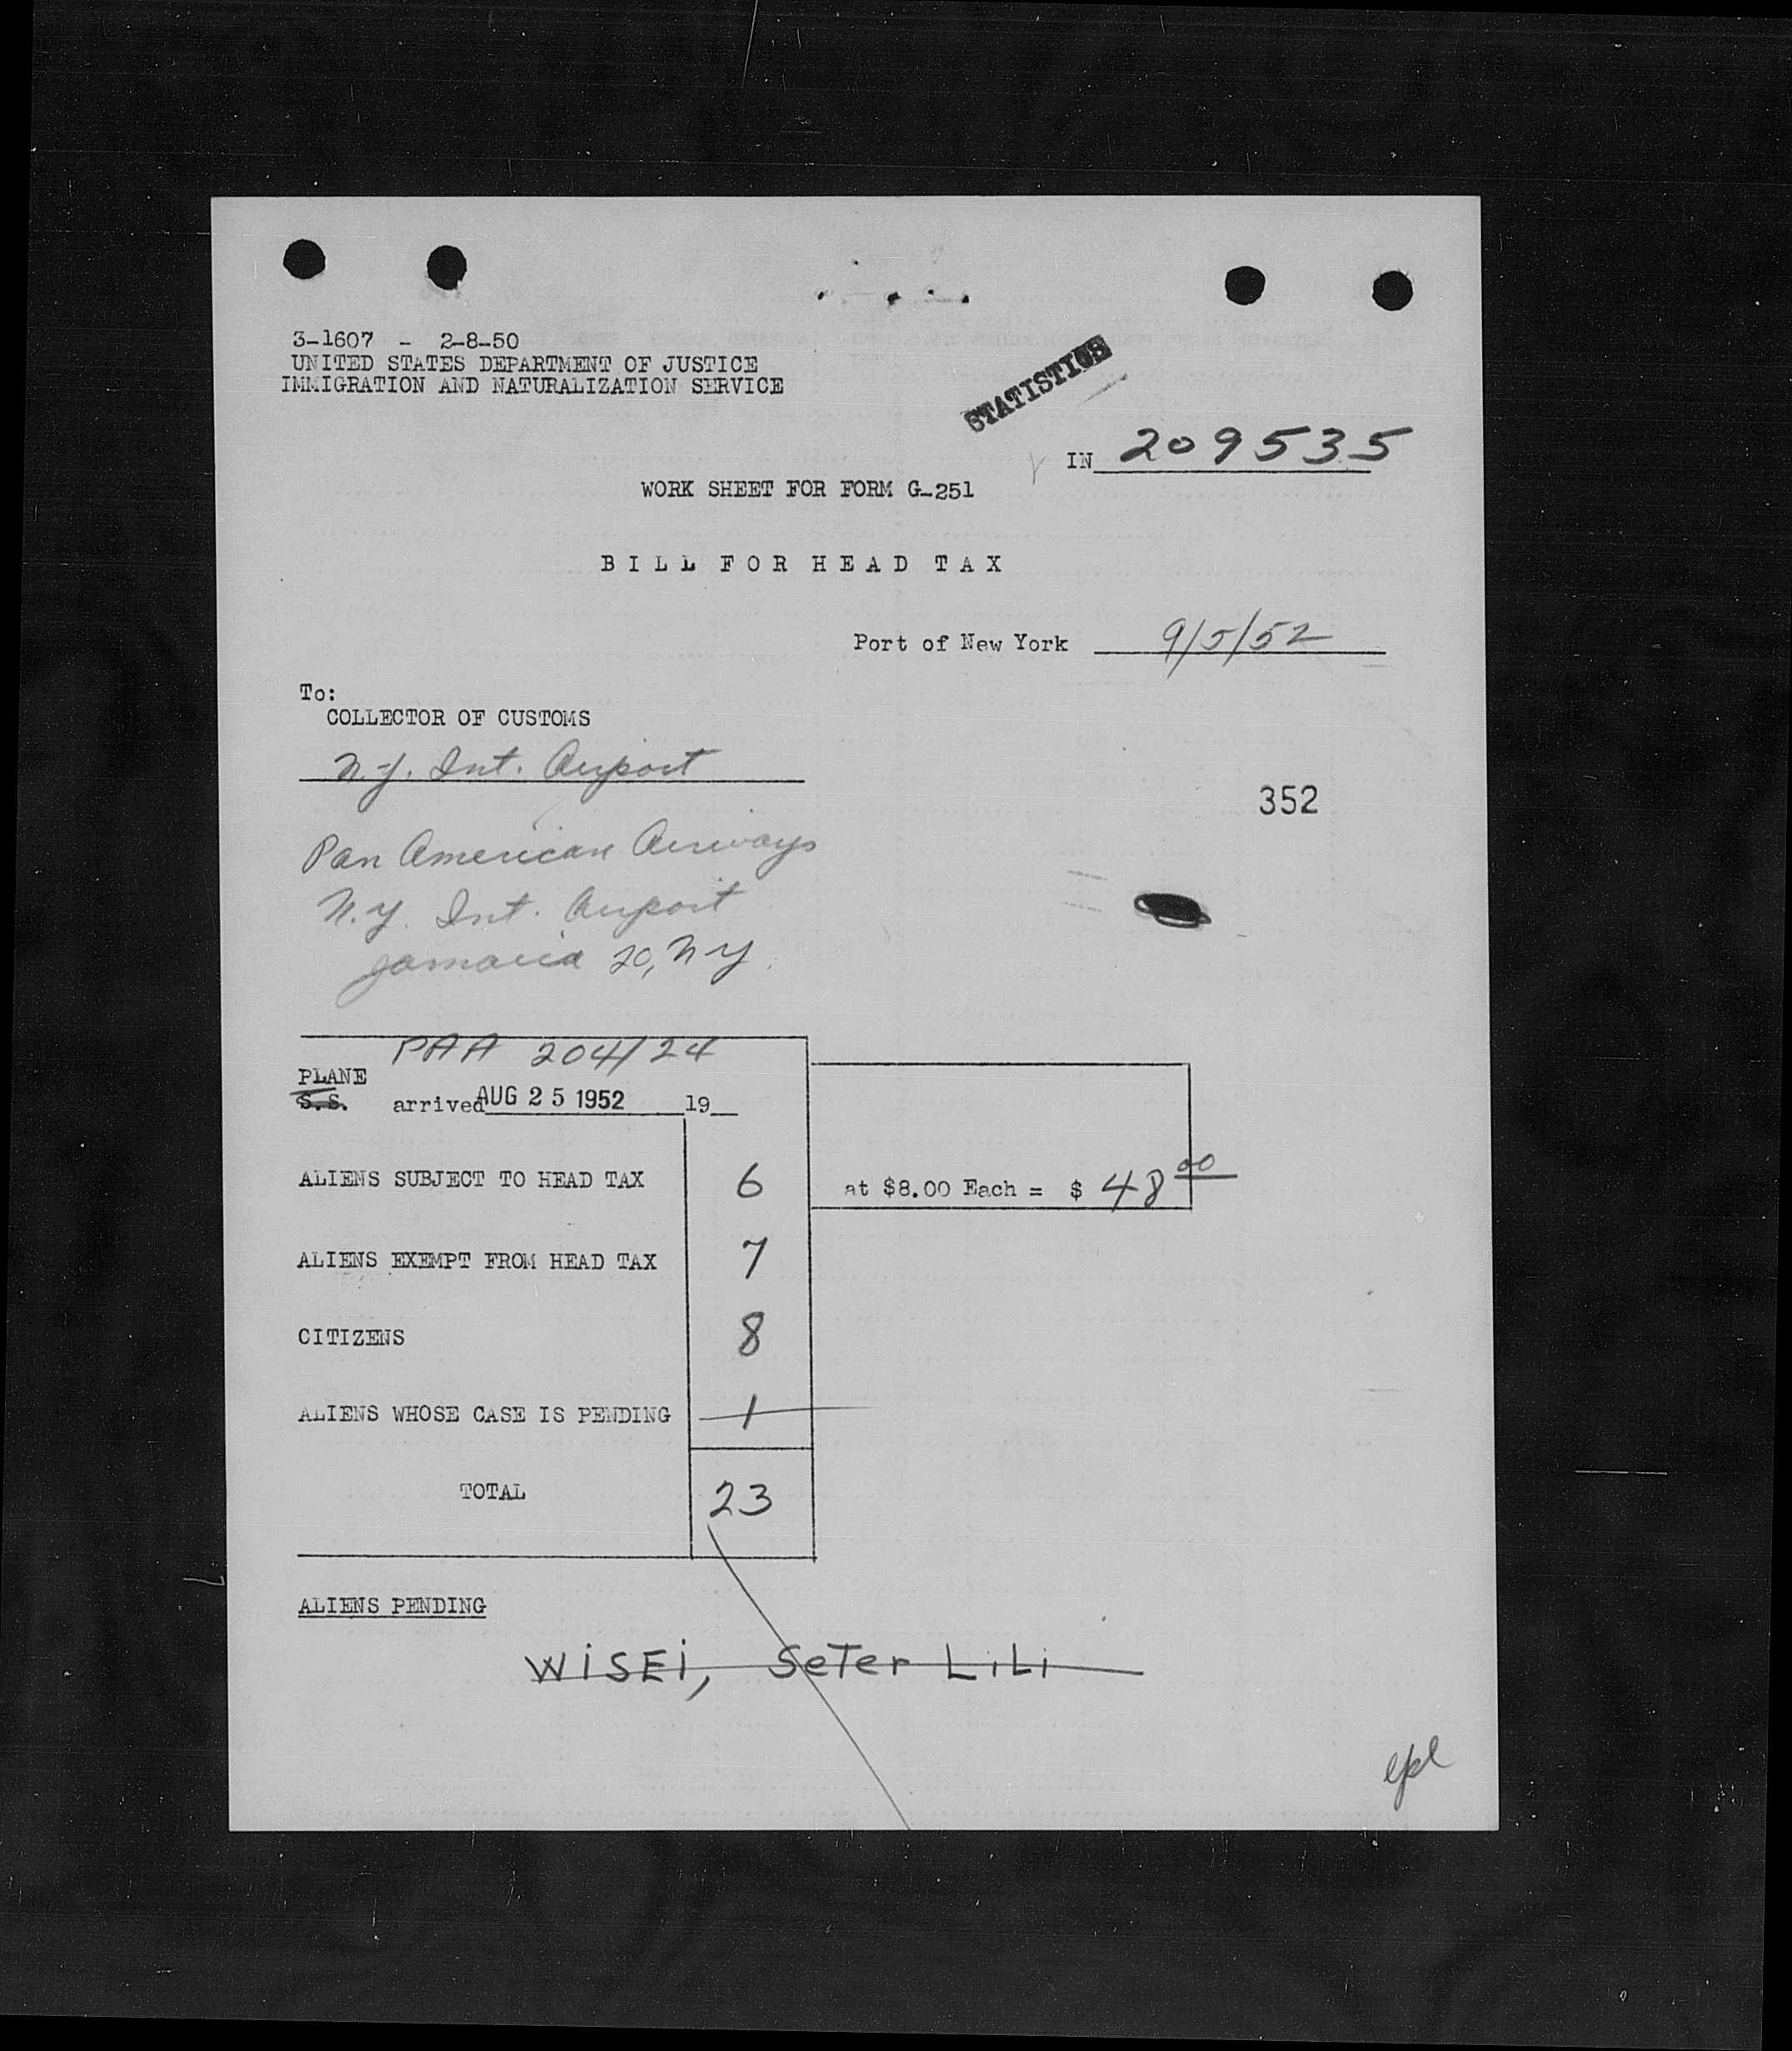 3-1607 - 2-8-50
UNITED STATES DEPARTMENT OF JUSTICE
IMMIGRATION AND NATURALIZATION SERVICE
STATISTICS
IN 209535
WORK SHEET FOR FORM G-251
BILL FOR HEAD TAX
Port of New York 9/5/52
To:
COLLECTOR OF CUSTOMS
N.Y. Int. Airport
352
Pan American Airways
N.Y. Int. Airport
Jamaica 20, N.Y.
PAA 204/24
PLANE
S.S. arrived AUG 25 1952 19
ALIENS SUBJECT TO HEAD TAX 6 at $8.00 Each = $ 48 00
ALIENS EXEMPT FROM HEAD TAX 7
CITIZENS 8
ALIENS WHOSE CASE IS PENDING 1
TOTAL 23
ALIENS PENDING
WiSEi, SeTer LiLi